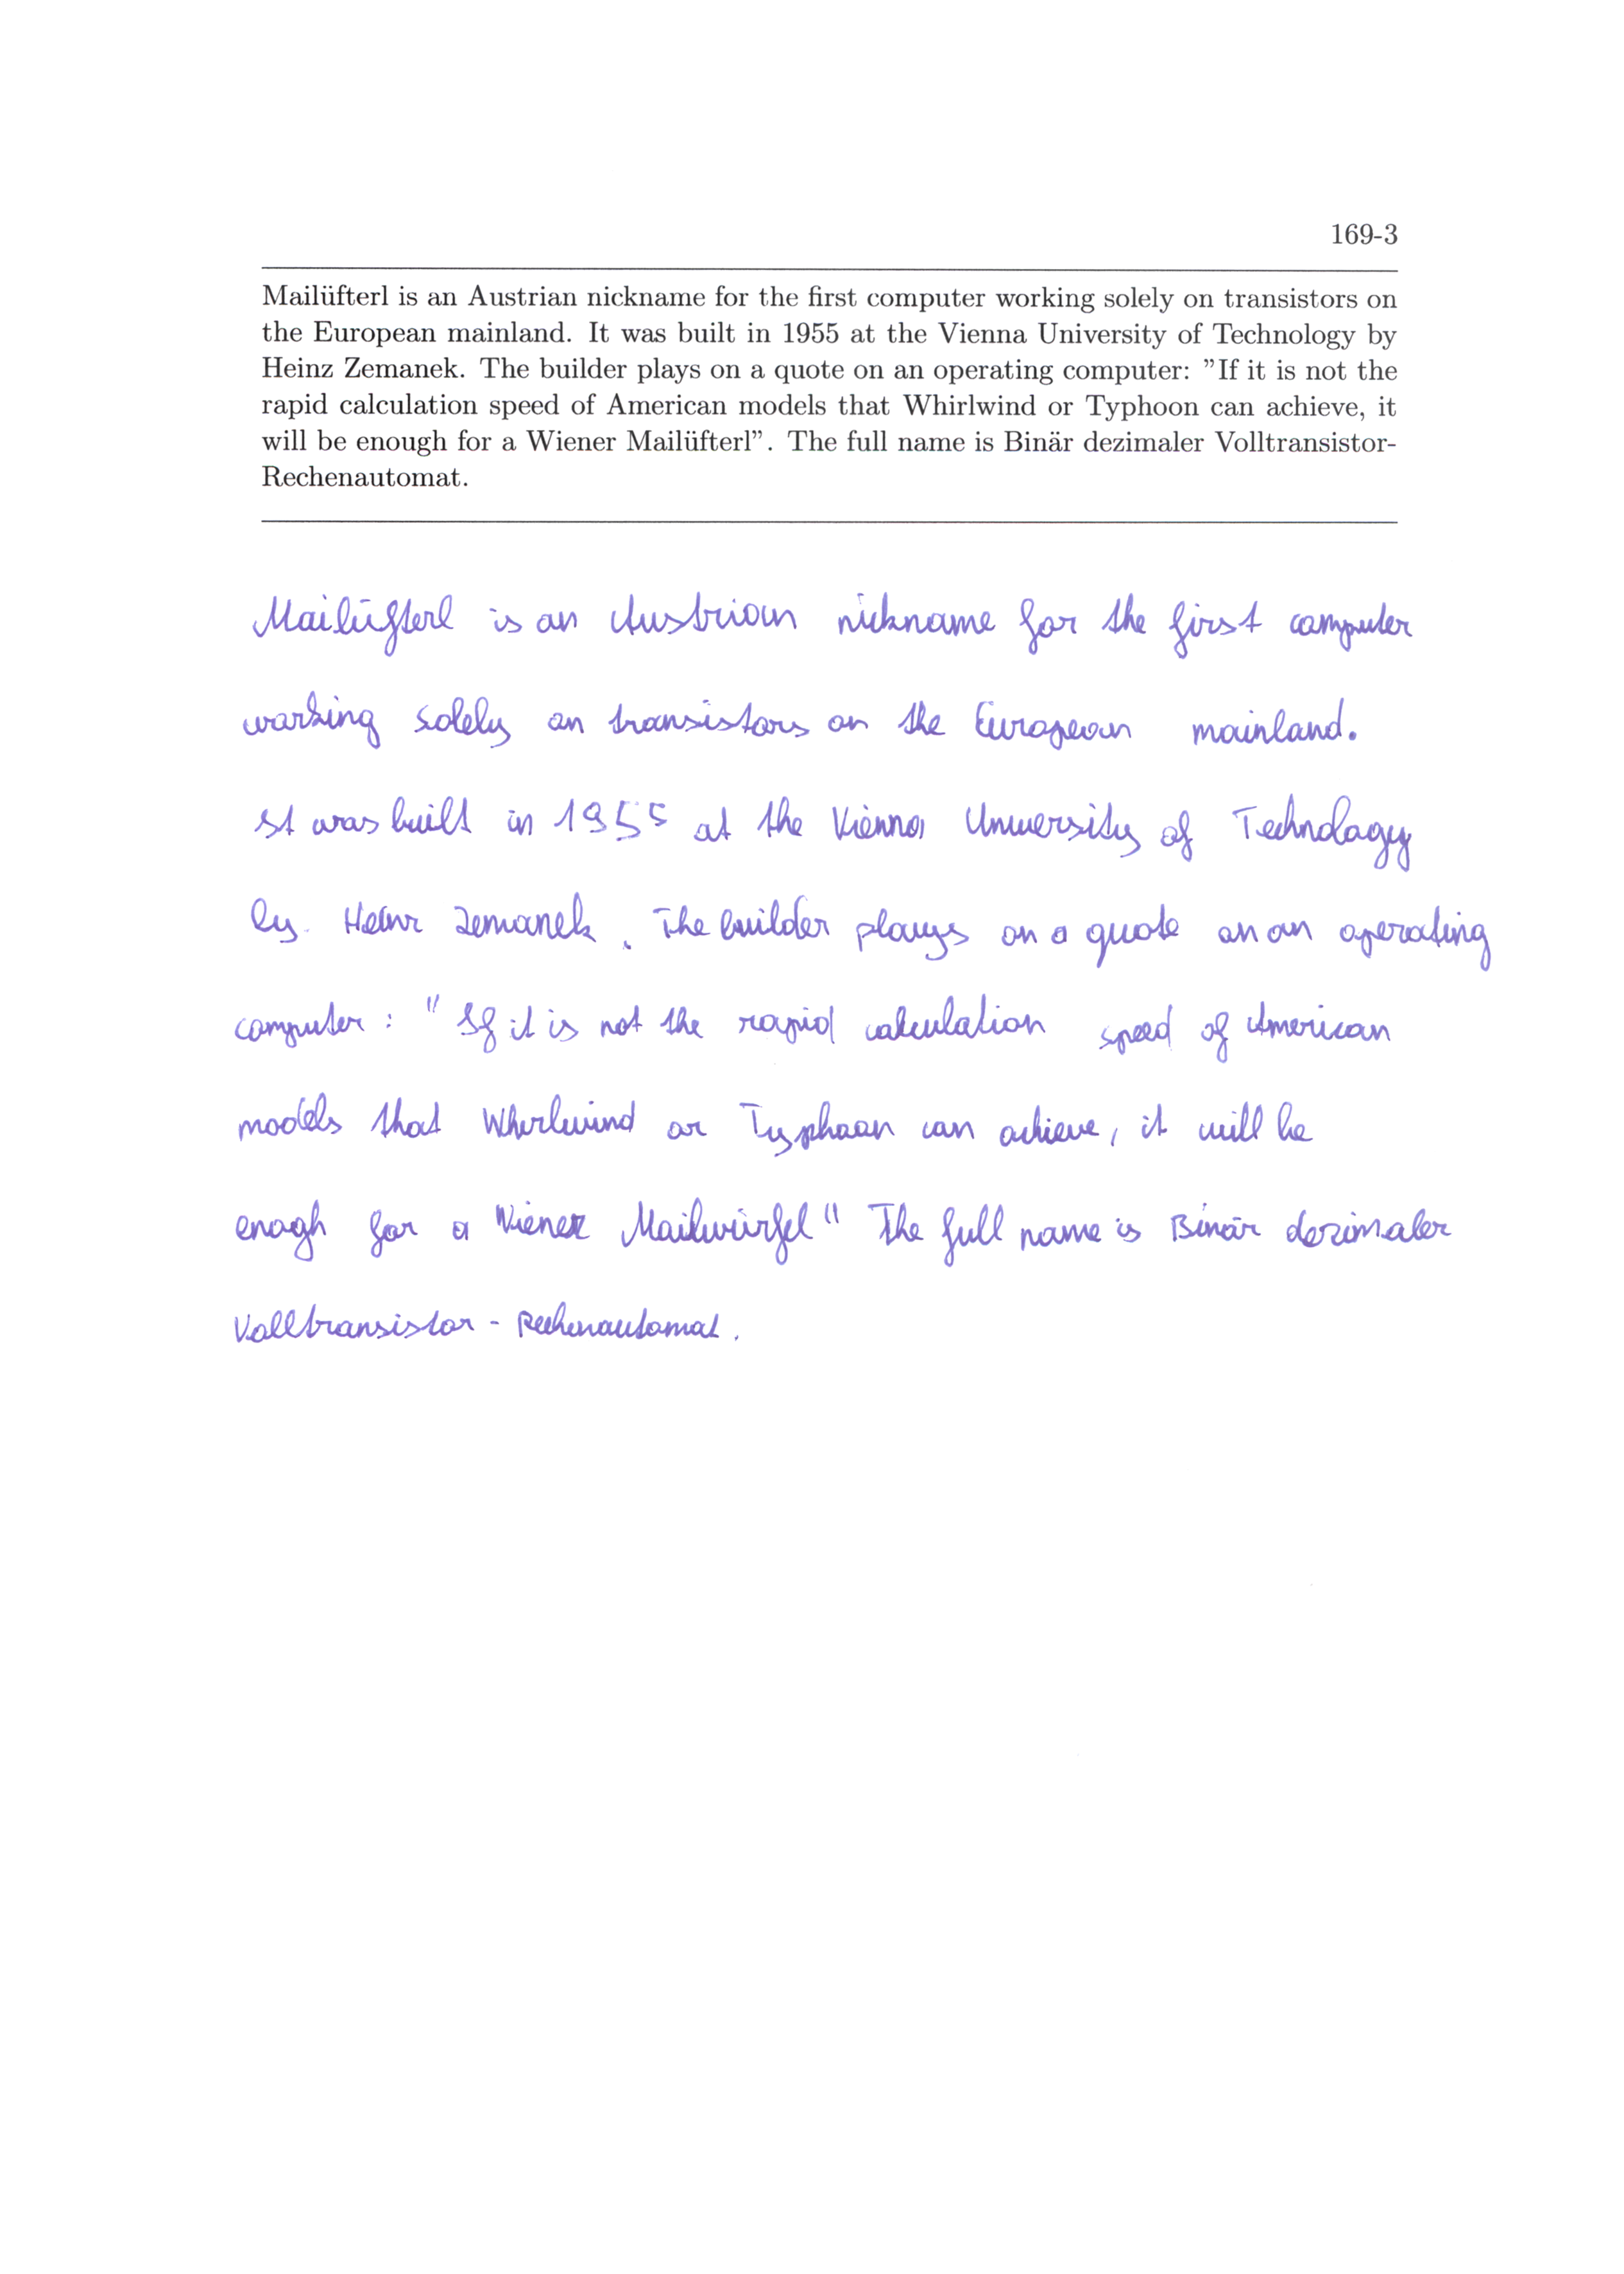 169-3
Mailüfterl is an Austrian nickname for the first computer working solely on transistors on
the European mainland. It was built in 1955 at the Vienna University of Technology by
Heinz Zemanek. The builder plays on a quote on an operating computer: ”If it is not the
rapid calculation speed of American models that Whirlwind or Typhoon can achieve, it
will be enough for a Wiener Mailüfterl”. The full name is Binär dezimaler Volltransistor-
Rechenautomat.
Mailüfterl is an Austrian nickname for the first computer
working solely on transistors on the European mainland.
It was built in 1955 at the Vienna University of Technology
by Heinz Zemanek. The builder plays on a quote on an operating
computer: "If it is not the rapid calculation speed of American
models that Whirlwind or Typhoon can achieve, it will be
enogh for a Wiener Mailwürfel" The full name is Binär dezimaler
Volltransistor - Rechenautomat.